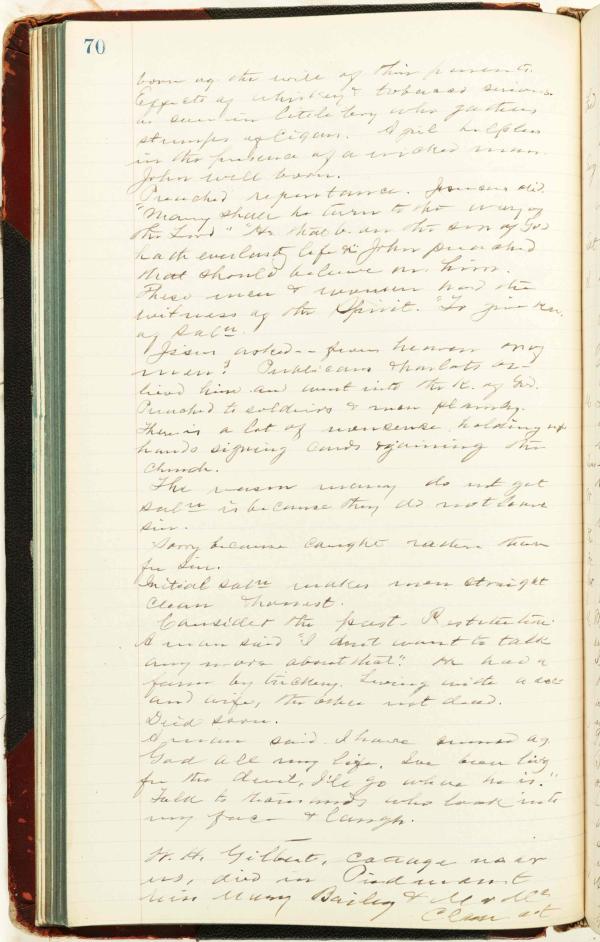 70
born ag the will of their parents.
Effects of whiskey & tobacco serious
as seen in little boy who gathers
stumps of cigars. April helpless
in the presence of a wicked man.
John well born.
Preached repentance. Jesus did.
"Many shall he turn to the way of
the Lord" "He that b. on the son of God
hath everlasty life &" John preached
that should believe on him.
These men & women had the
witness of the Spirit. "To give kn.
of salvn".
Jesus asked -- from heaven or of
men? Publicans & harlots be-
lieved him and went into the K. of God.
Preached to soldiers & men plainly.
There is a lot of nonsense, holding up
hands signing cards & joining the
church.
The reason many do not get
salvn is because they do not leave
sin.
Sorry because caught rather than
for sin.
Initial salvn makes men straight
clean & honest.
Consider the past. Restitution.
A man said "I don't want to talk
any more about that". He had a
farm by trickery. Living with a
2nd wife, the other not dead.
Died soon.
A man said I have sinned ag
God all my life, I've been livg
for the devil, I'll go where he is."
Talk to thousands who look into
my face & laugh.
W. H. Gilbert, cottage near
us, died in Piedmont
Miss Mary Bailey & Mc